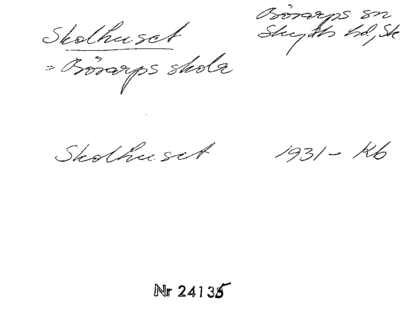 Skolhuset
= Börarps skola
Börarps sn
Skytts hd, Sk
Skolhuset 1931- Kb
Nr 24135